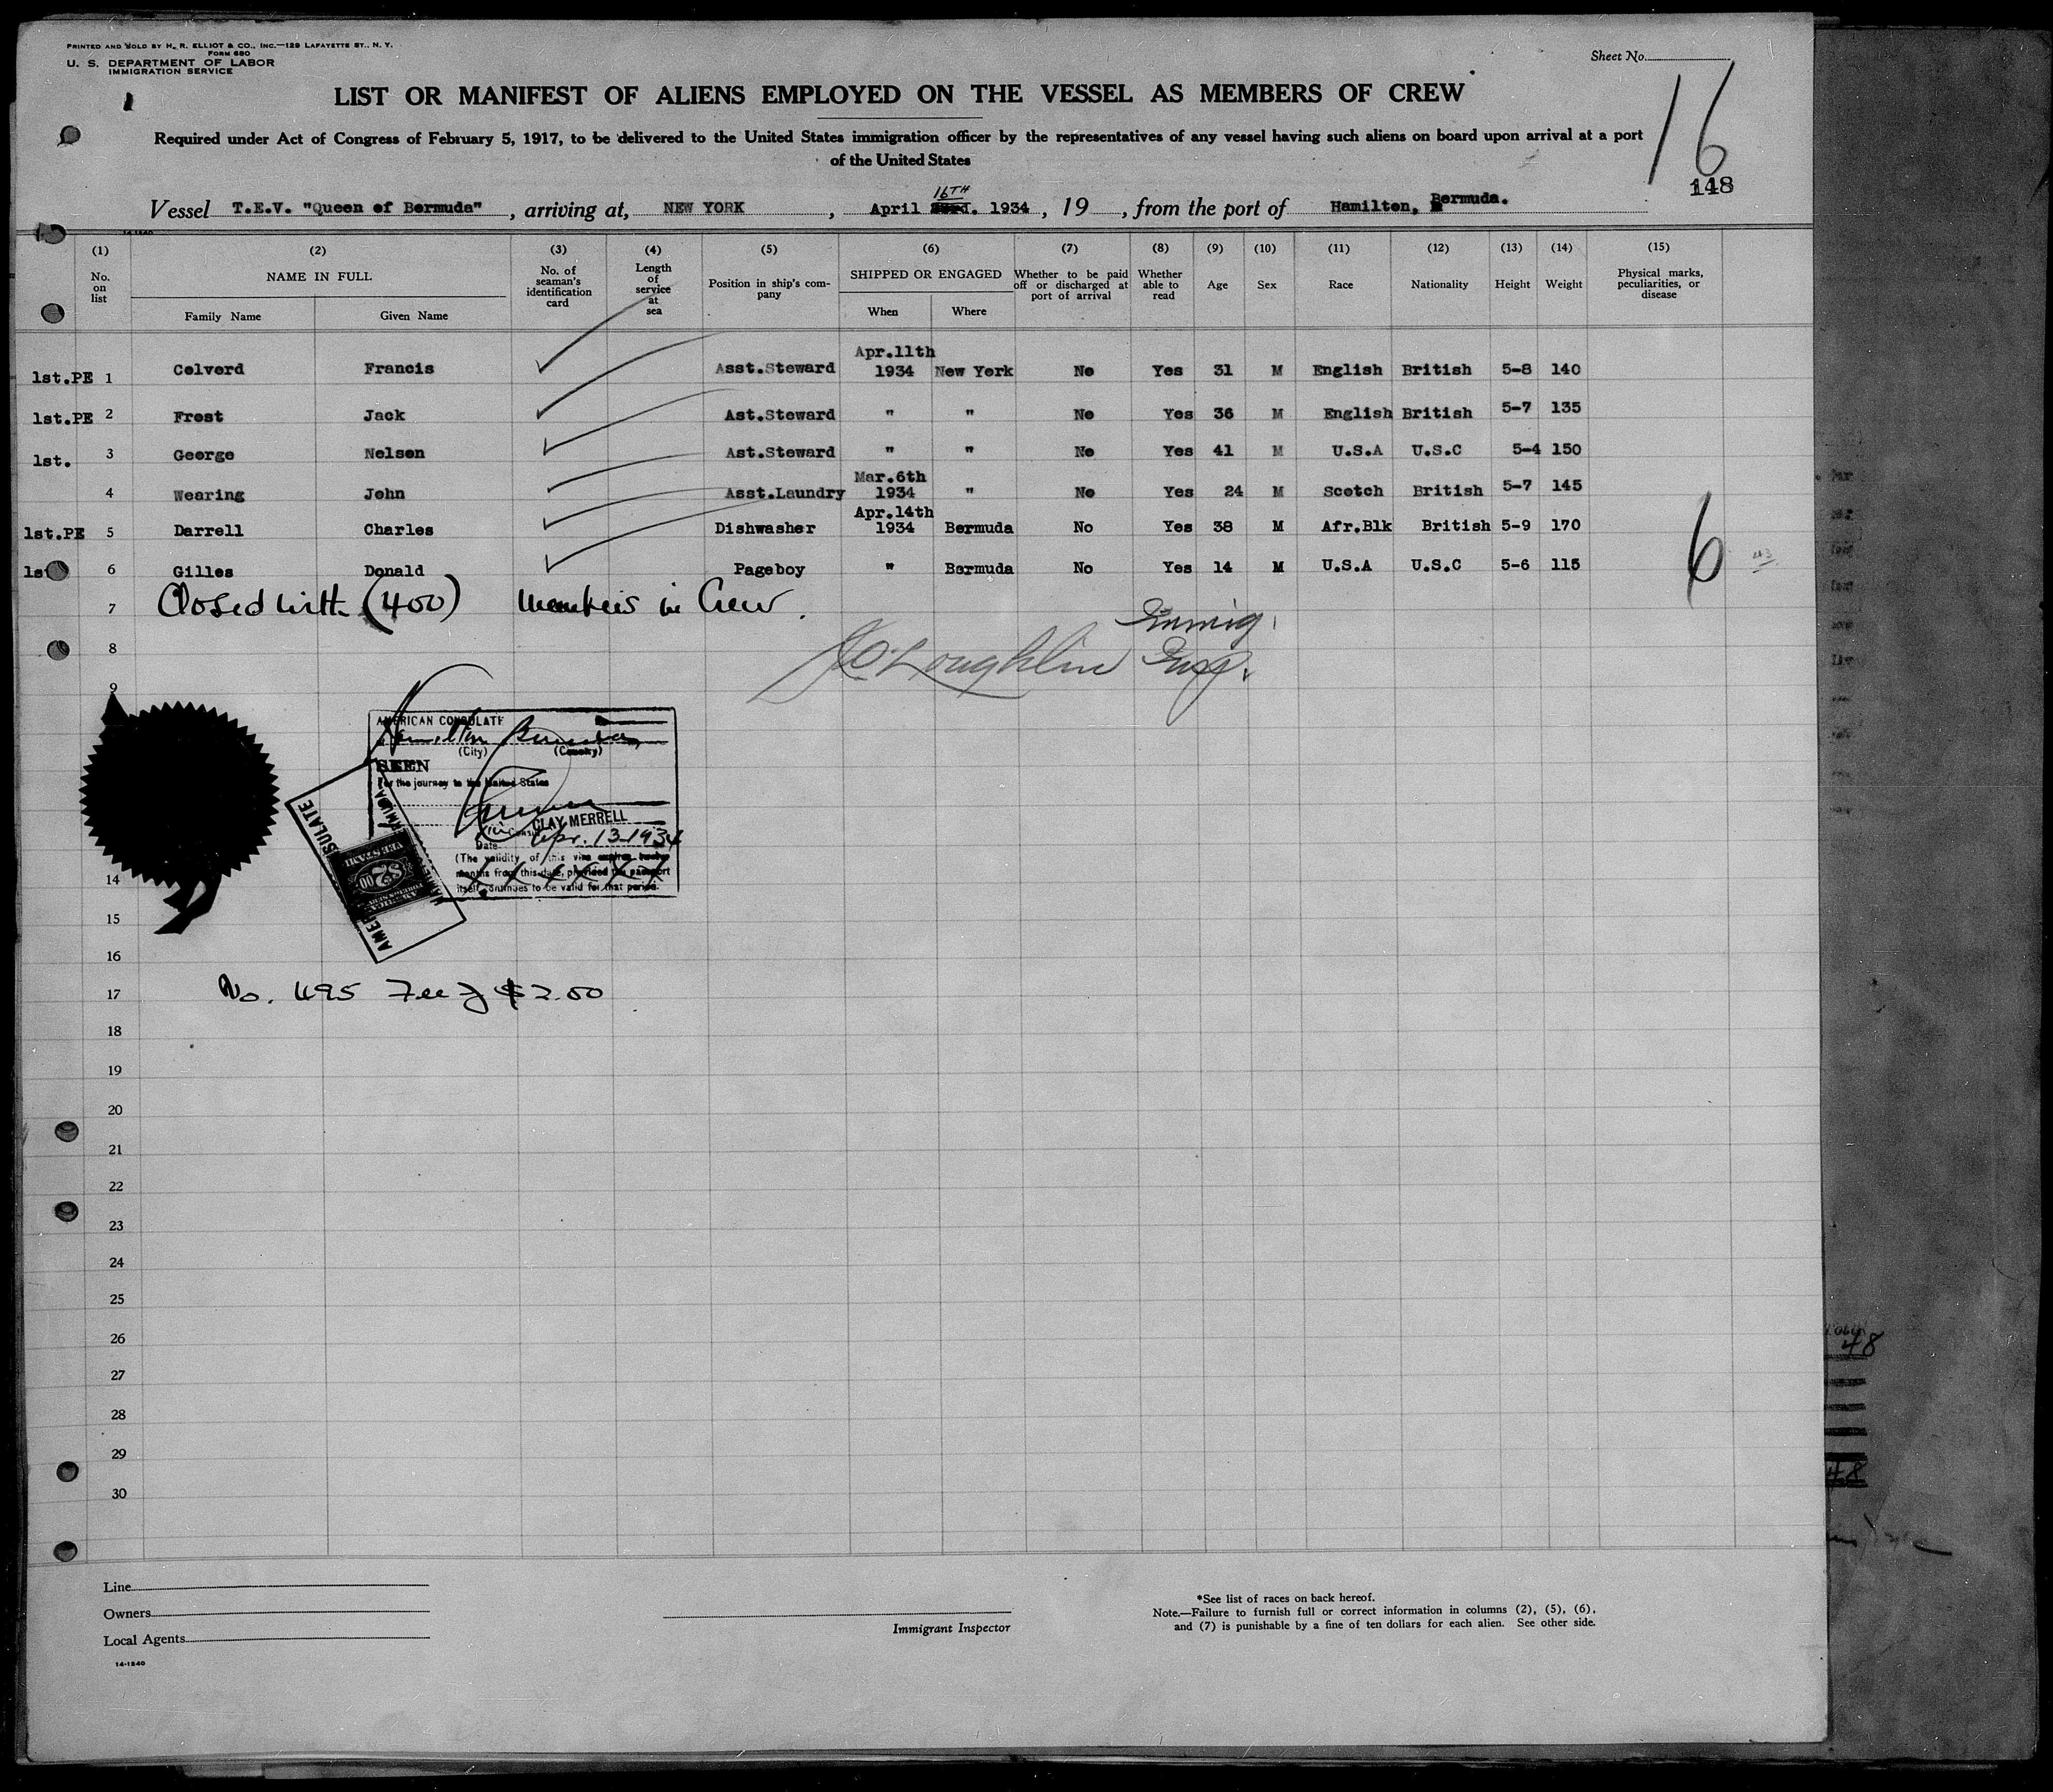 PRINTED AND SOLD BY H. R. ELLIOT & CO., INC.—129 LAFAYETTE ST., N. Y.
FORM 680
U. S. DEPARTMENT OF LABOR
IMMIGRATION SERVICE
Sheet No.
16
148
LIST OR MANIFEST OF ALIENS EMPLOYED ON THE VESSEL AS MEMBERS OF CREW
Required under Act of Congress of February 5, 1917, to be delivered to the United States immigration officer by the representatives of any vessel having such aliens on board upon arrival at a port
of the United States
16TH
Vessel T.E.V. "Queen of Bermuda", arriving at, NEW YORK, April 1934, 19, from the port of Hamilton, Bermuda.
(1) (2) (3) (4) (5) (6) (7) (8) (9) (10) (11) (12) (13) (14) (15)
No. on list
NAME IN FULL
Family Name Given Name
No. of seaman's identification card
Length of service at sea
Position in ship's company
SHIPPED OR ENGAGED
When Where
Whether to be paid off or discharged at port of arrival
Whether able to read
Age Sex Race Nationality Height Weight
Physical marks, peculiarities, or disease
1st.PE 1 Colverd Francis Asst.Steward Apr.11th 1934 New York No Yes 31 M English British 5-8 140
1st.PE 2 Frost Jack Ast.Steward " " No Yes 36 M English British 5-7 135
1st. 3 George Nelson Ast.Steward " " No Yes 41 M U.S.A U.S.C 5-4 150
4 Wearing John Asst.Laundry Mar.6th 1934 " No Yes 24 M Scotch British 5-7 145
1st.PE 5 Darrell Charles Dishwasher Apr.14th 1934 Bermuda No Yes 38 M Afr.Blk British 5-9 170
1st 6 Gilles Donald Pageboy " Bermuda No Yes 14 M U.S.A U.S.C 5-6 115
6
43
7 Closed with (400) Members in Crew.
Immig.
8 McLoughlin Insp.
9
AMERICAN CONSULATE
Hamilton Bermuda
(City) (Country)
SEEN
For the journey to the United States
CLAY MERRELL
Date Apr. 13 1934
(The validity of this visa expires twelve
months from this date, provided the passport
itself continues to be valid for that period.
$2.00
14
15
16
17 No. 495 Fee of $2.00
18
19
20
21
22
23
24
25
26
27
28
29
30
48
48
Line
Owners
Local Agents
14-1240
Immigrant Inspector
*See list of races on back hereof.
Note.—Failure to furnish full or correct information in columns (2), (5), (6),
and (7) is punishable by a fine of ten dollars for each alien. See other side.